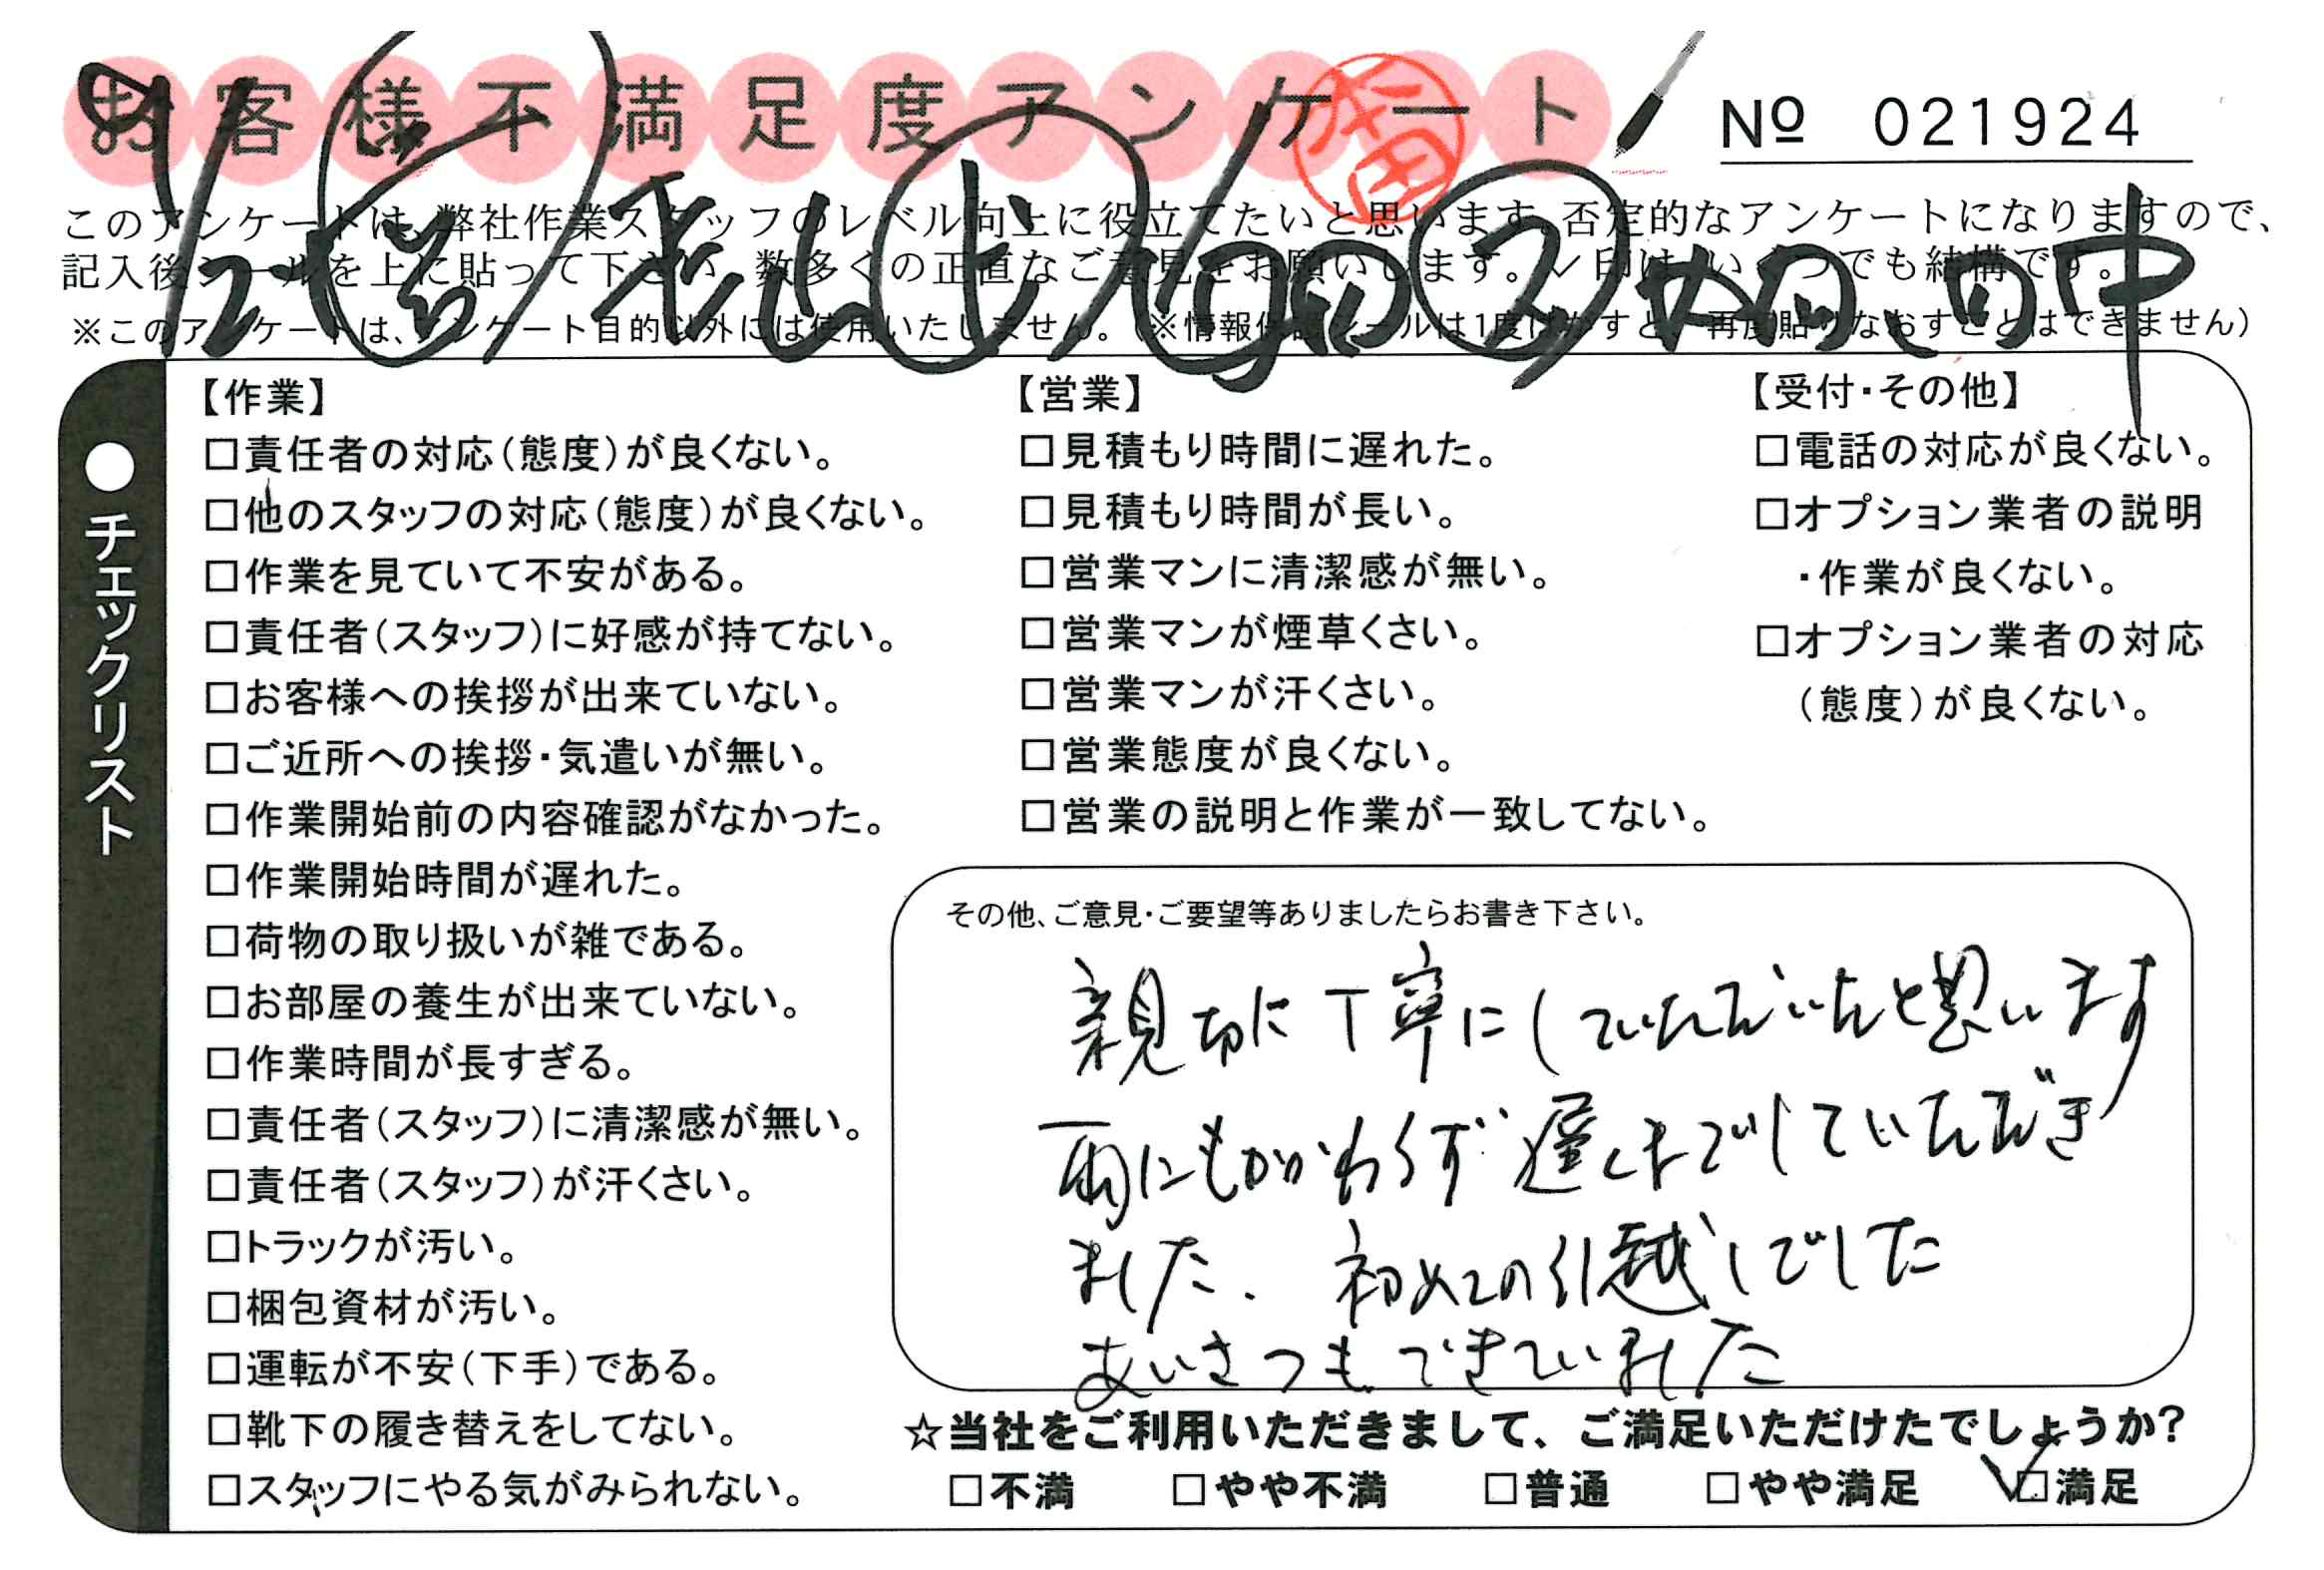 お客様不満足度アンケート
№ 021924
このアンケートは、弊社作業スタッフのレベル向上に役立てたいと思います。否定的なアンケートになりますので、
記入後シールを上に貼って下さい。数多くの正直なご意見をお願いします。✓印は、いくつでも結構です。
※このアンケートは、アンケート目的以外には使用いたしません。(※情報保護シールは1度はがすと、再度貼りなおすことはできません)
●チェックリスト
【作業】
□責任者の対応(態度)が良くない。
□他のスタッフの対応(態度)が良くない。
□作業を見ていて不安がある。
□責任者(スタッフ)に好感が持てない。
□お客様への挨拶が出来ていない。
□ご近所への挨拶・気遣いが無い。
□作業開始前の内容確認がなかった。
□作業開始時間が遅れた。
□荷物の取り扱いが雑である。
□お部屋の養生が出来ていない。
□作業時間が長すぎる。
□責任者(スタッフ)に清潔感が無い。
□責任者(スタッフ)が汗くさい。
□トラックが汚い。
□梱包資材が汚い。
□運転が不安(下手)である。
□靴下の履き替えをしてない。
□スタッフにやる気がみられない。
【営業】
□見積もり時間に遅れた。
□見積もり時間が長い。
□営業マンに清潔感が無い。
□営業マンが煙草くさい。
□営業マンが汗くさい。
□営業態度が良くない。
□営業の説明と作業が一致してない。
【受付・その他】
□電話の対応が良くない。
□オプション業者の説明
・作業が良くない。
□オプション業者の対応
(態度)が良くない。
その他、ご意見・ご要望等ありましたらお書き下さい。
親切に丁寧にしていただいたと思います
雨にもかかわらず遅くまでしていただき
ました。初めての引越しでした
あいさつもできていました
☆当社をご利用いただきまして、ご満足いただけたでしょうか?
□不満 □やや不満 □普通 □やや満足 ☑満足